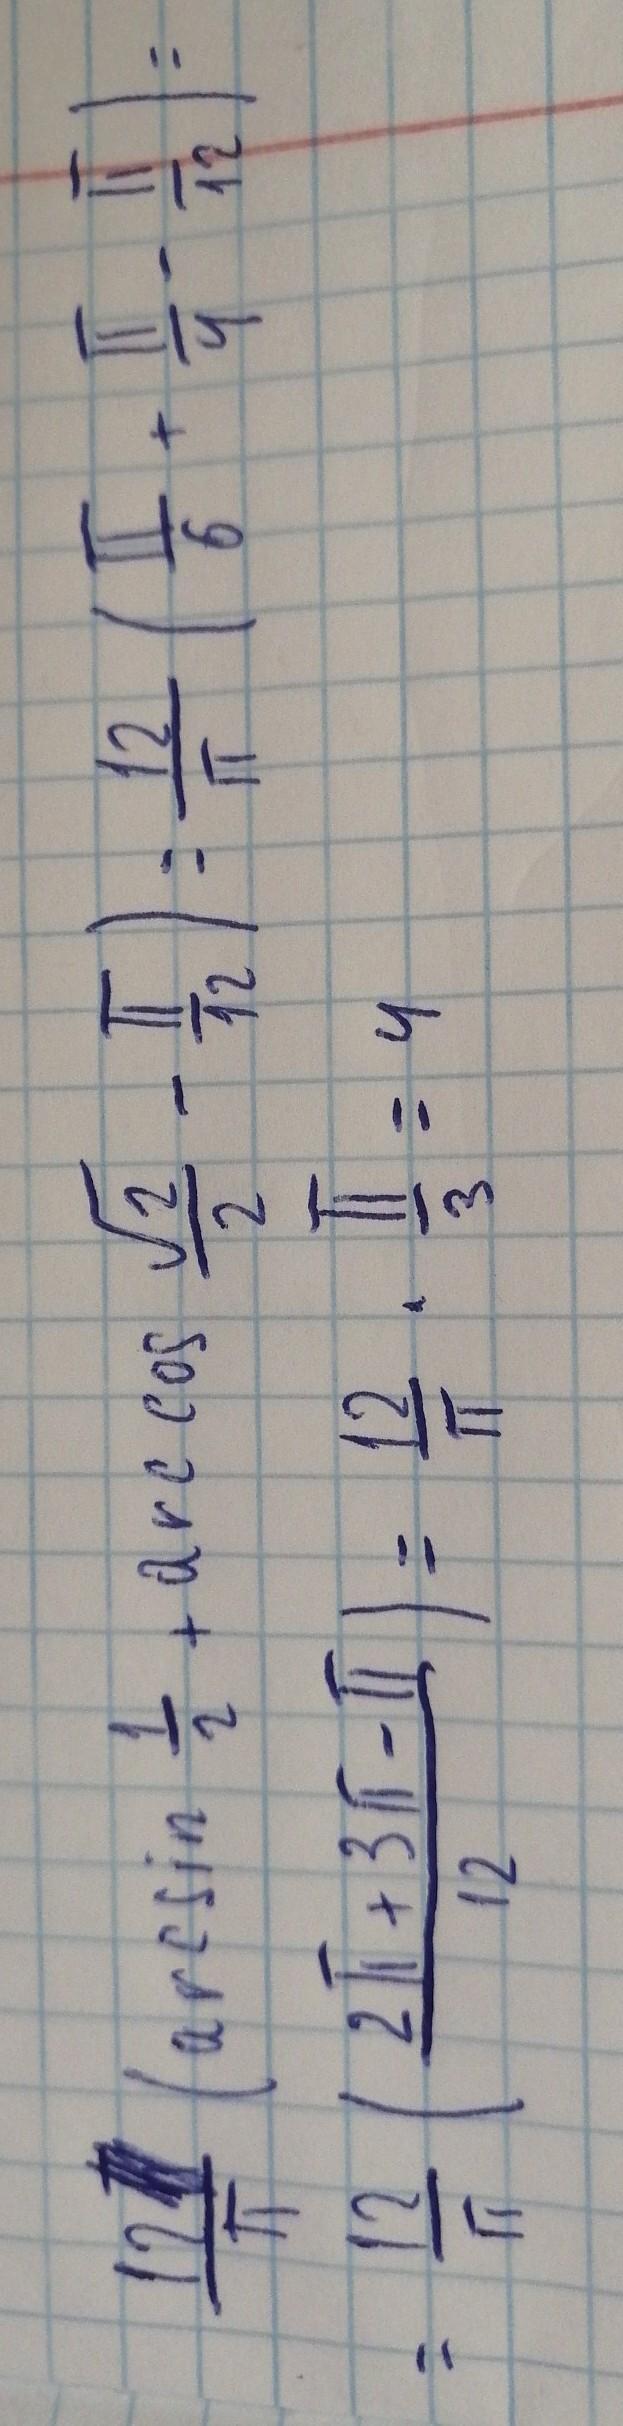 12/π (arcsin 1/2 + arccos √2/2 - π/12) = 12/π (π/6 + π/4 - π/12) =
= 12/π (2π + 3π - π/12) = 12/π · π/3 = 4